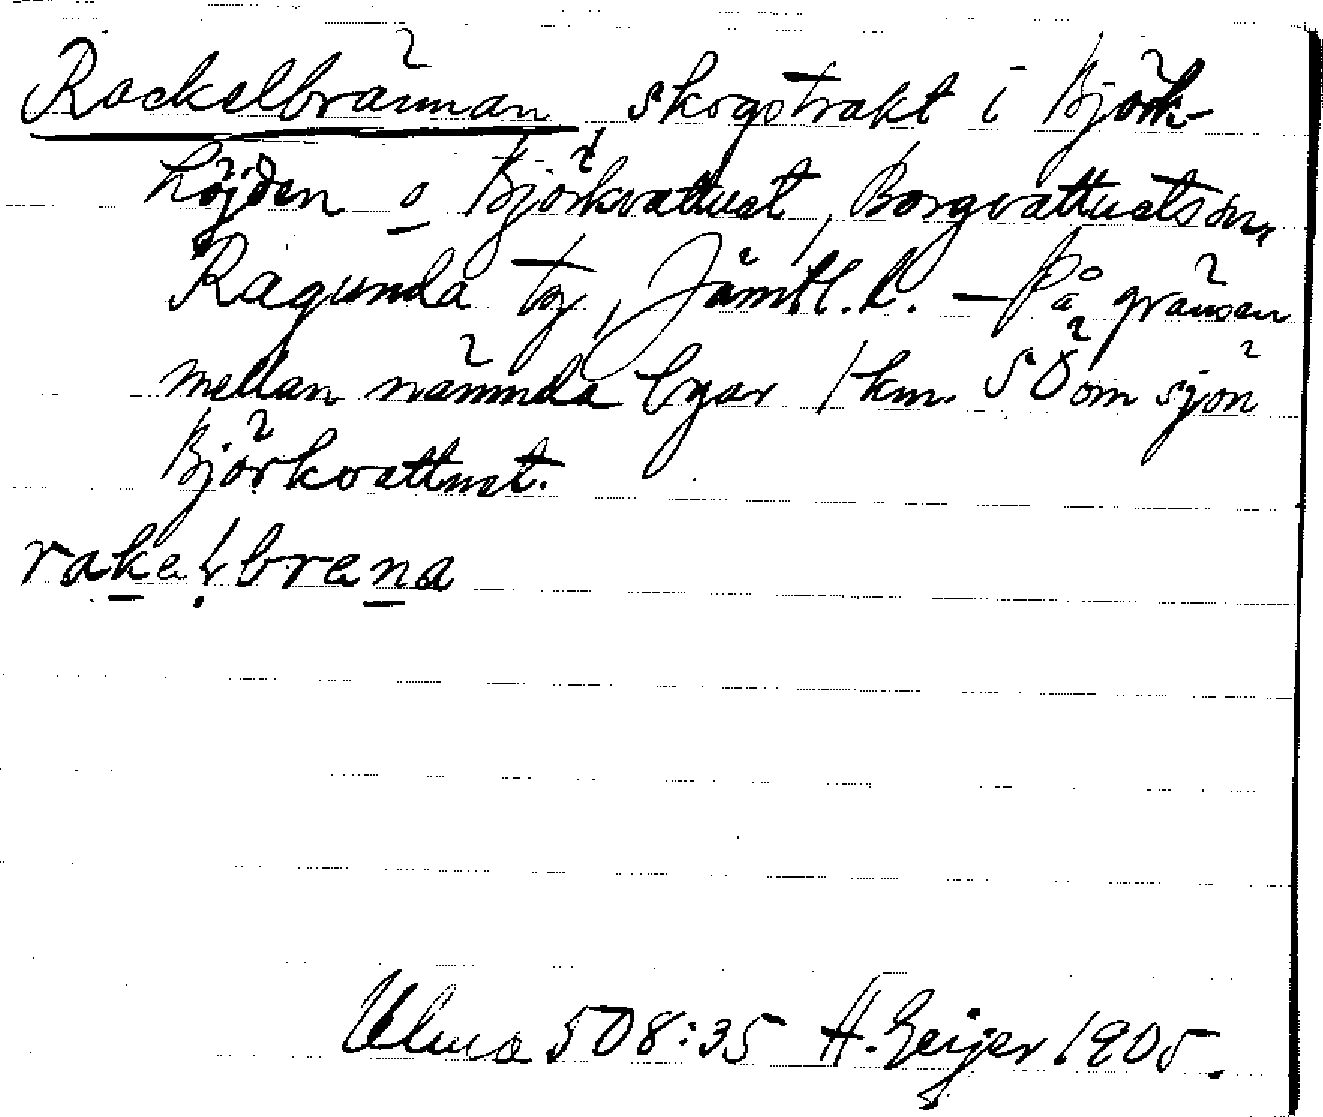 Rackelbrännan, skogstrakt i Björk-
höjden o Björkvattnet, Borgvattnets sn,
Ragunda tg, Jämtl. l. – På gränsen
mellan nämnda byar 1 km. SÖ om sjön
Björkvattnet.
rakelbrena
Ulma 508:35 H. Geijer 1905.